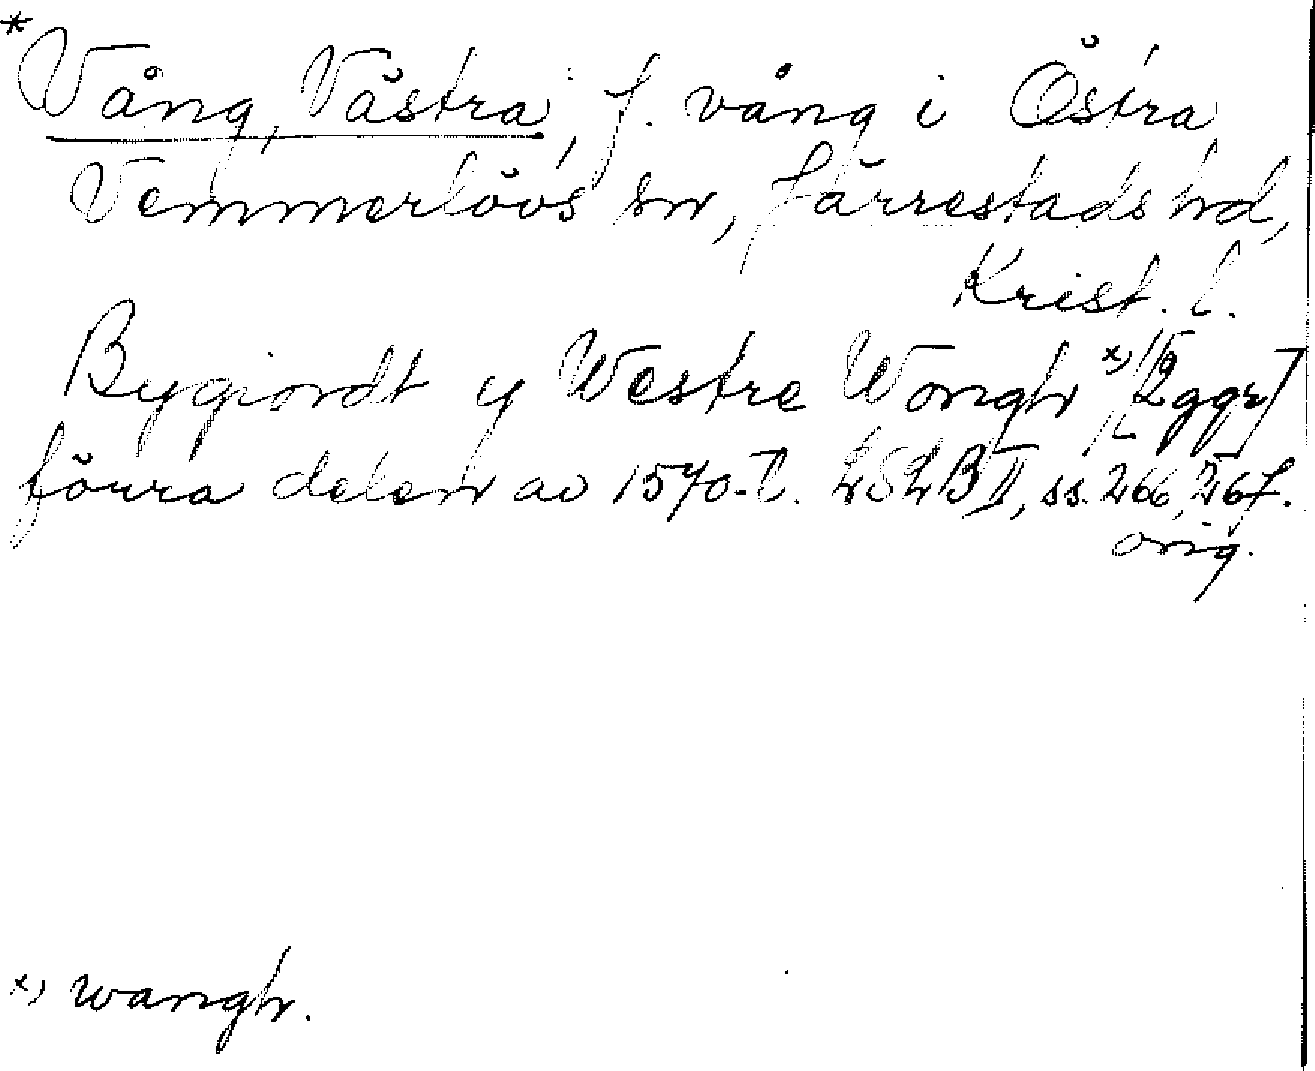 *Vång, Västra, f. vång i Östra
Vemmerlövs sn, Järrestads hd,
Krist. l.
Bygiordt y Westre Wongh x) [2 ggr]
förra delen av 1570-t. LSLB II, ss. 266, 267.
orig.
x) wangh.